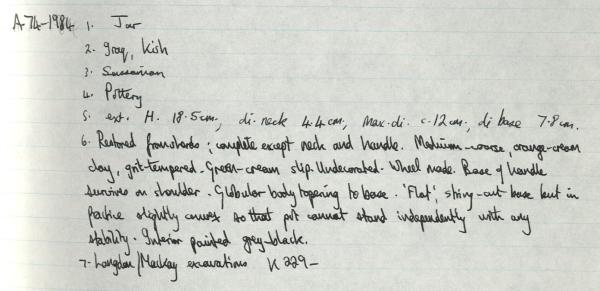 A74-1984 1. Jar
2. Iraq, Kish
3. Sassanian
4. Pottery
5. ext. H. 18.5cm, di. neck 4.4cm, max. di. c. 12cm, di base 7.8cm.
6. Restored from sherds; complete except neck and handle. Medium-coarse, orange-cream
clay, grit-tempered. Green-cream slip. Undecorated. Wheel made. Base of handle
survives on shoulder. Globular body tapering to base. 'Flat', string-cut base but in
practice slightly convex so that pot cannot stand independently with any
stability. Interior painted grey-black.
7. Langdon/Mackay excavations K 229-